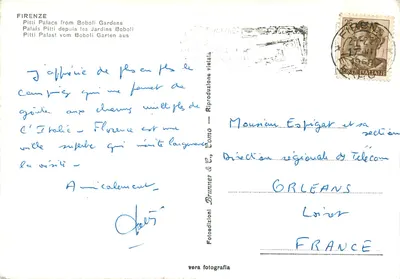 FIRENZE
Pitti Palace from Boboli Gardens
Palais Pitti depuis les Jardins Boboli
Pitti Palast vom Boboli Garten aus
J'apprécie de plus en plus le
camping qui me permet de
goûter aux charmes multiples de
l'Italie - Florence est une
ville superbe qui mérite largement
la visite -
Amicalement
Fotoedizioni Brunner & C., Como - Riproduzione vietata
FIRENZE
Monsieur Espiget et sa section
Direction régionale des Télécom
ORLEANS
Loiret
FRANCE
vera fotografia